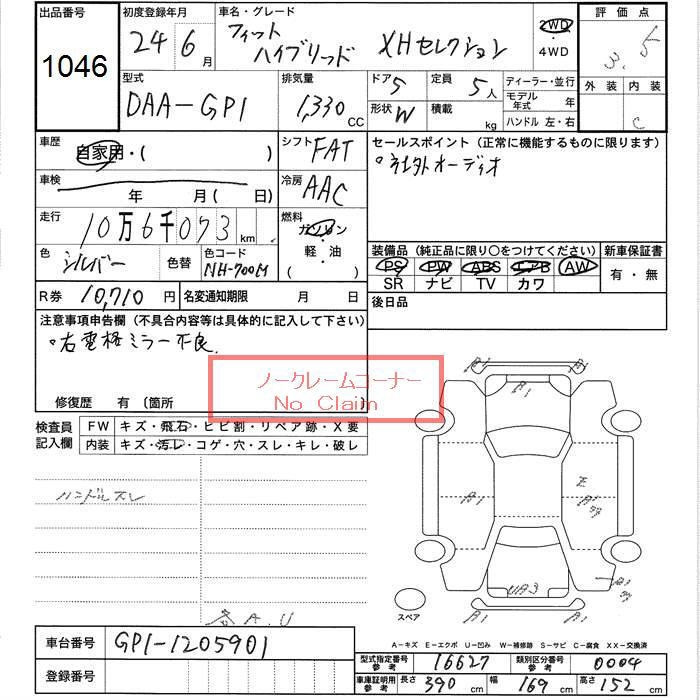 出品番号 初度登録年月 車名・グレード 評価点
1046 24 6月 フィット ハイブリッド XHセレクション 2WD・4WD 3.5
外装 内装
C
型式 排気量 ドア 5 定員 5人 ディーラー・並行
DAA-GP1 1,330 CC 形状 W 積載 kg モデル年式 年
ハンドル 左・右
車歴 自家用・( ) シフト FAT セールスポイント (正常に機能するものに限ります)
車検 年 月(日) 冷房 AAC °社外オーディオ
走行 10万6千073km 燃料 ガソリン・軽・油 ( )
色 シルバー 色替 色コード NH-700M
装備品(純正品に限り○をつけてください) 新車保証書
PS PW ABS エアB AW 有・無
SR ナビ TV カワ
R券 10,710円 名変通知期限 月 日 後日品
注意事項申告欄 (不具合内容等は具体的に記入して下さい)
°右電格ミラー不良
ノークレームコーナー
No Claim
修復歴 有 〔箇所 〕
検査員記入欄 FW キズ・飛石・ヒビ割・リペア跡・X要
内装 キズ・汚レ・コゲ・穴・スレ・キレ・破レ
ハンドルスレ
A1
A1 A1 E
UA3
A1 A1
A.U
スペア
A-キズ E-エクボ U-凹み W-補修跡 S-サビ C-腐食 XX-交換済
車台番号 GP1-1205901
登録番号
型式指定番号 参考 16627 類別区分番号 参考 0004
車庫証明用 参考 長さ 390cm 幅 169cm 高さ 152cm